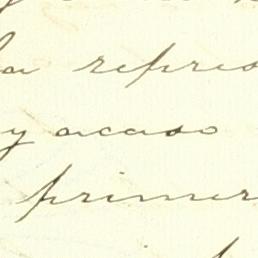 la repres
y acaso
primer